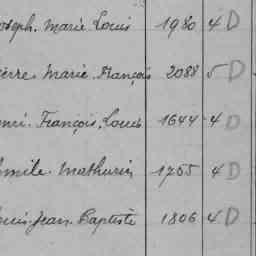 oseph. Marie Louis 1980 4 D
ierre Marie François 2088 5 D
enri. François, Louis 1644 4 D
mile Mathurin 1755 4 D
ouis Jean Baptiste 1806 4 D